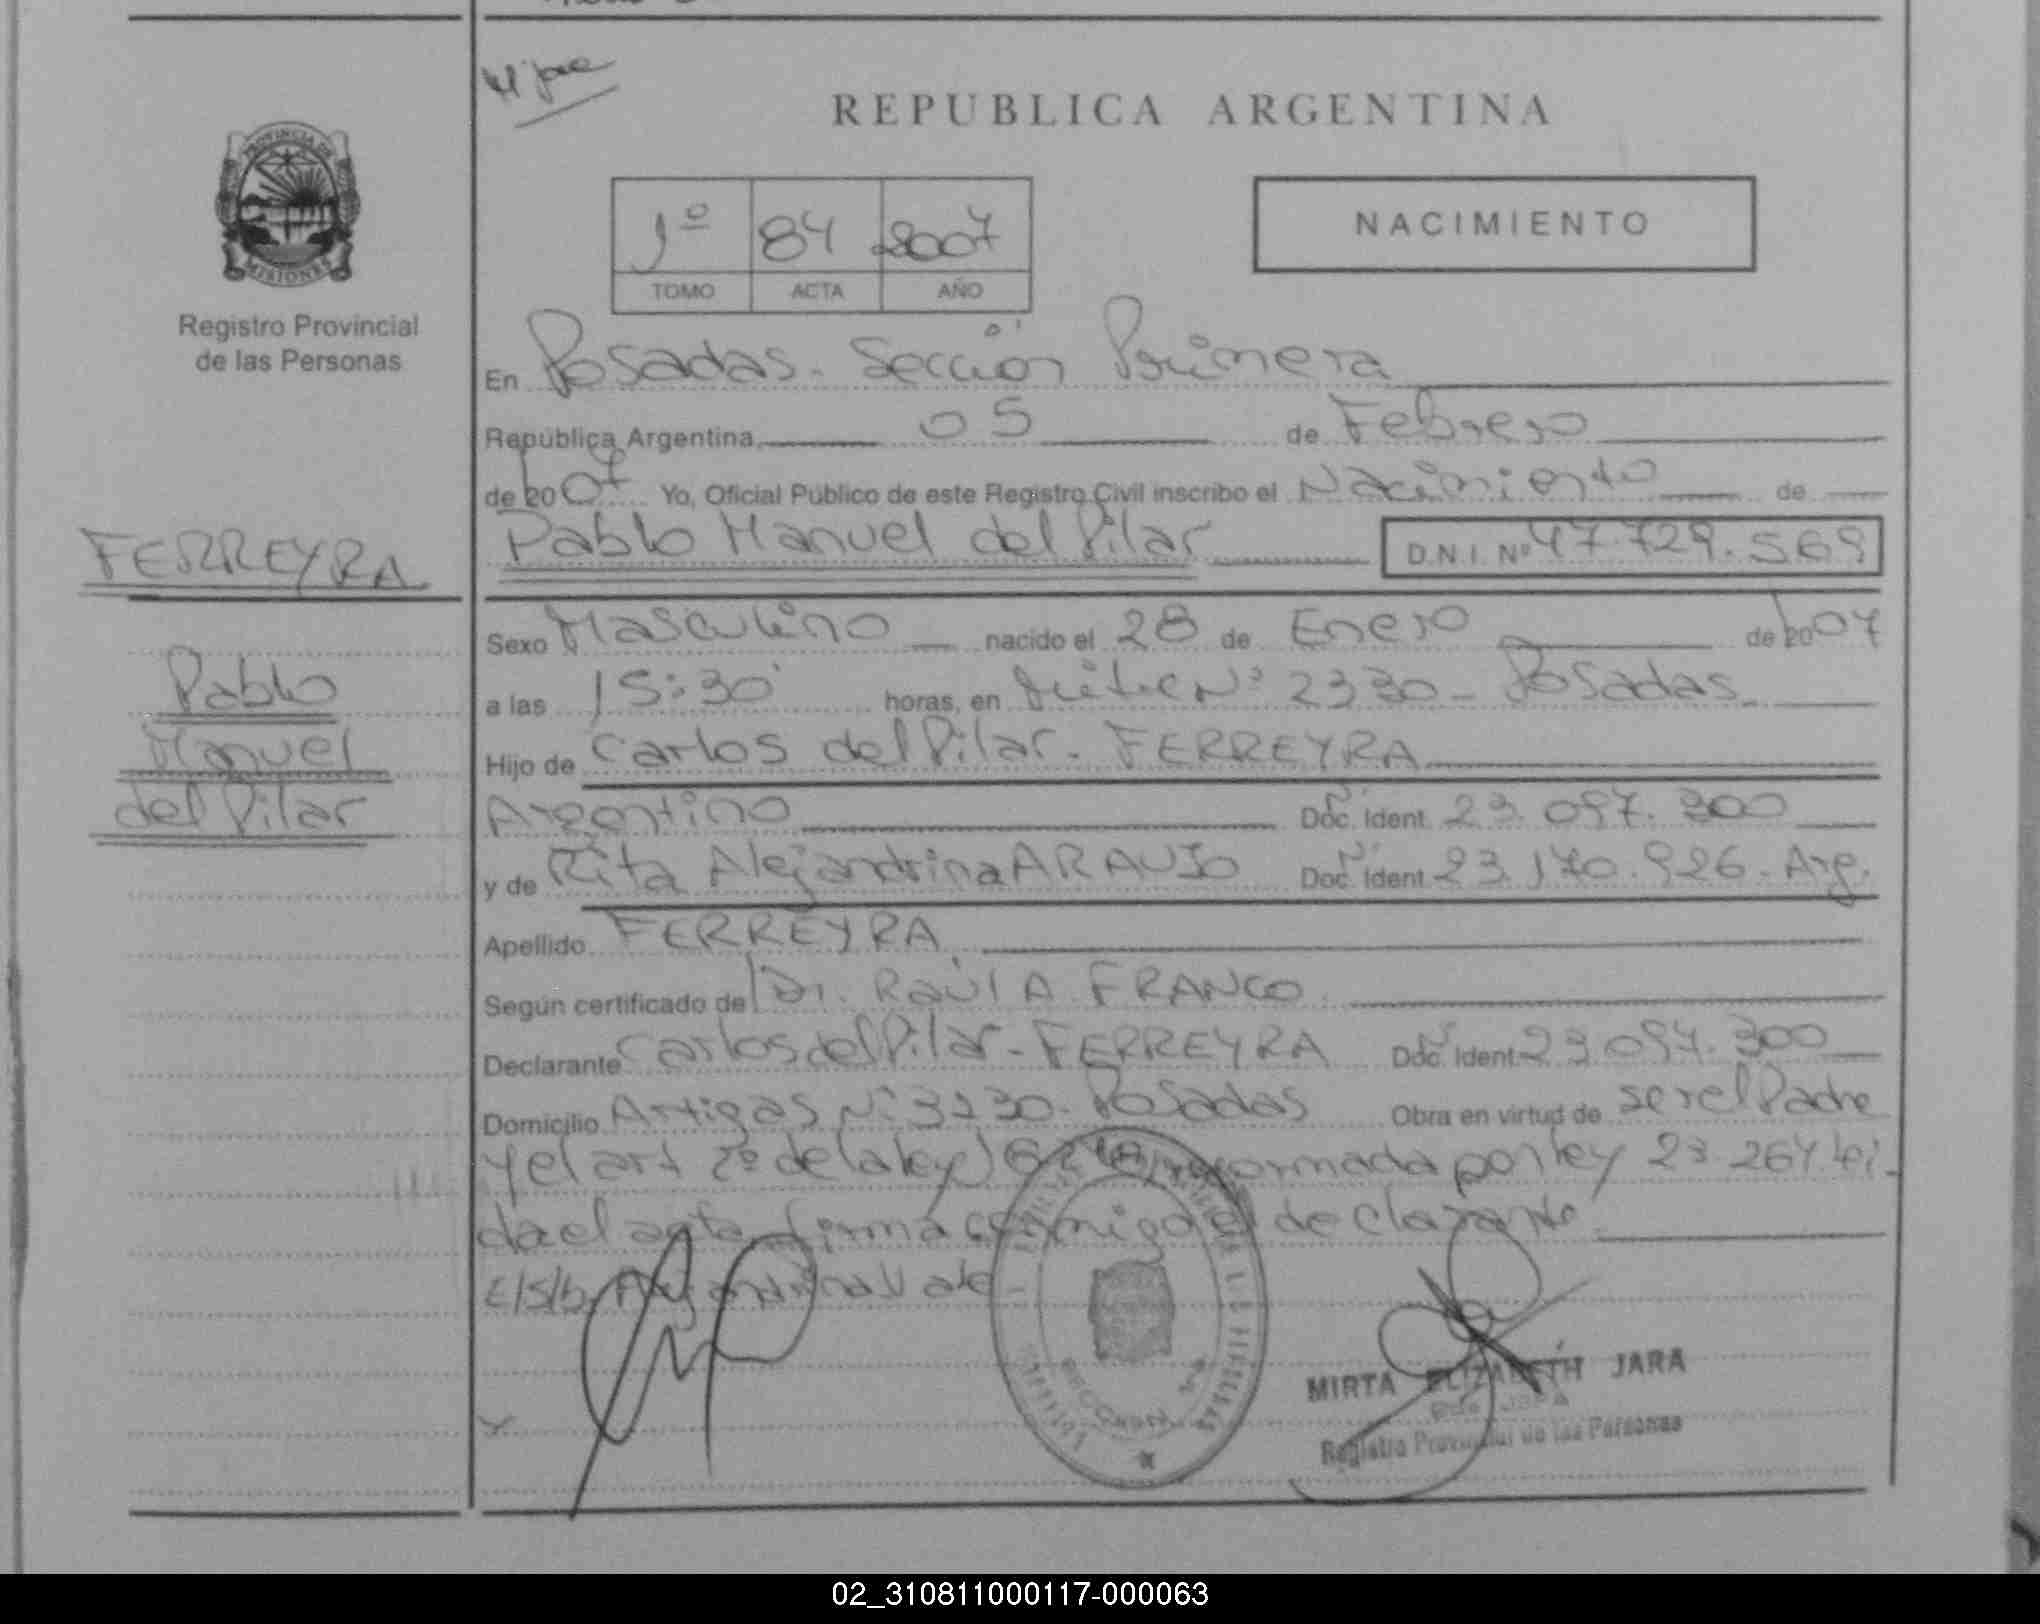 REPUBLICA ARGENTINA
PROVINCIA DE
MISIONES
Registro Provincial
de las Personas
1º 84 2007
TOMO ACTA AÑO
NACIMIENTO
En Posadas. Sección Primera
República Argentina, 05 de Febrero
de 2007 Yo, Oficial Público de este Registro Civil inscribo el Nacimiento de
FERREYRA
Pablo Manuel del Pilar D.N.I. Nº 47.729.569
Pablo
Manuel
del Pilar
Sexo Masculino nacido el 28 de Enero de 2007
a las 15:30 horas, en Nº 2330 - Posadas
Hijo de Carlos del Pilar - FERREYRA
Argentino Doc. Ident. 23.097.300
y de Rita Alejandrina ARAUJO Doc. Ident. 23.170.926 - Arg.
Apellido FERREYRA
Según certificado de Dr. Raúl A. FRANCO
Declarante Carlos del Pilar - FERREYRA Doc. Ident. 23.097.300
Domicilio Artigas Nº 3230 - Posadas Obra en virtud de ser el Padre
y el art 2º de la ley reformada por ley 23.264. Leí-
da el acta firma conmigo el declarante
E/S/b. Alejandrina Vale
SECCION 1ra
MIRTA ELIZABETH JARA
Registro Provincial de las Personas
02_310811000117-000063